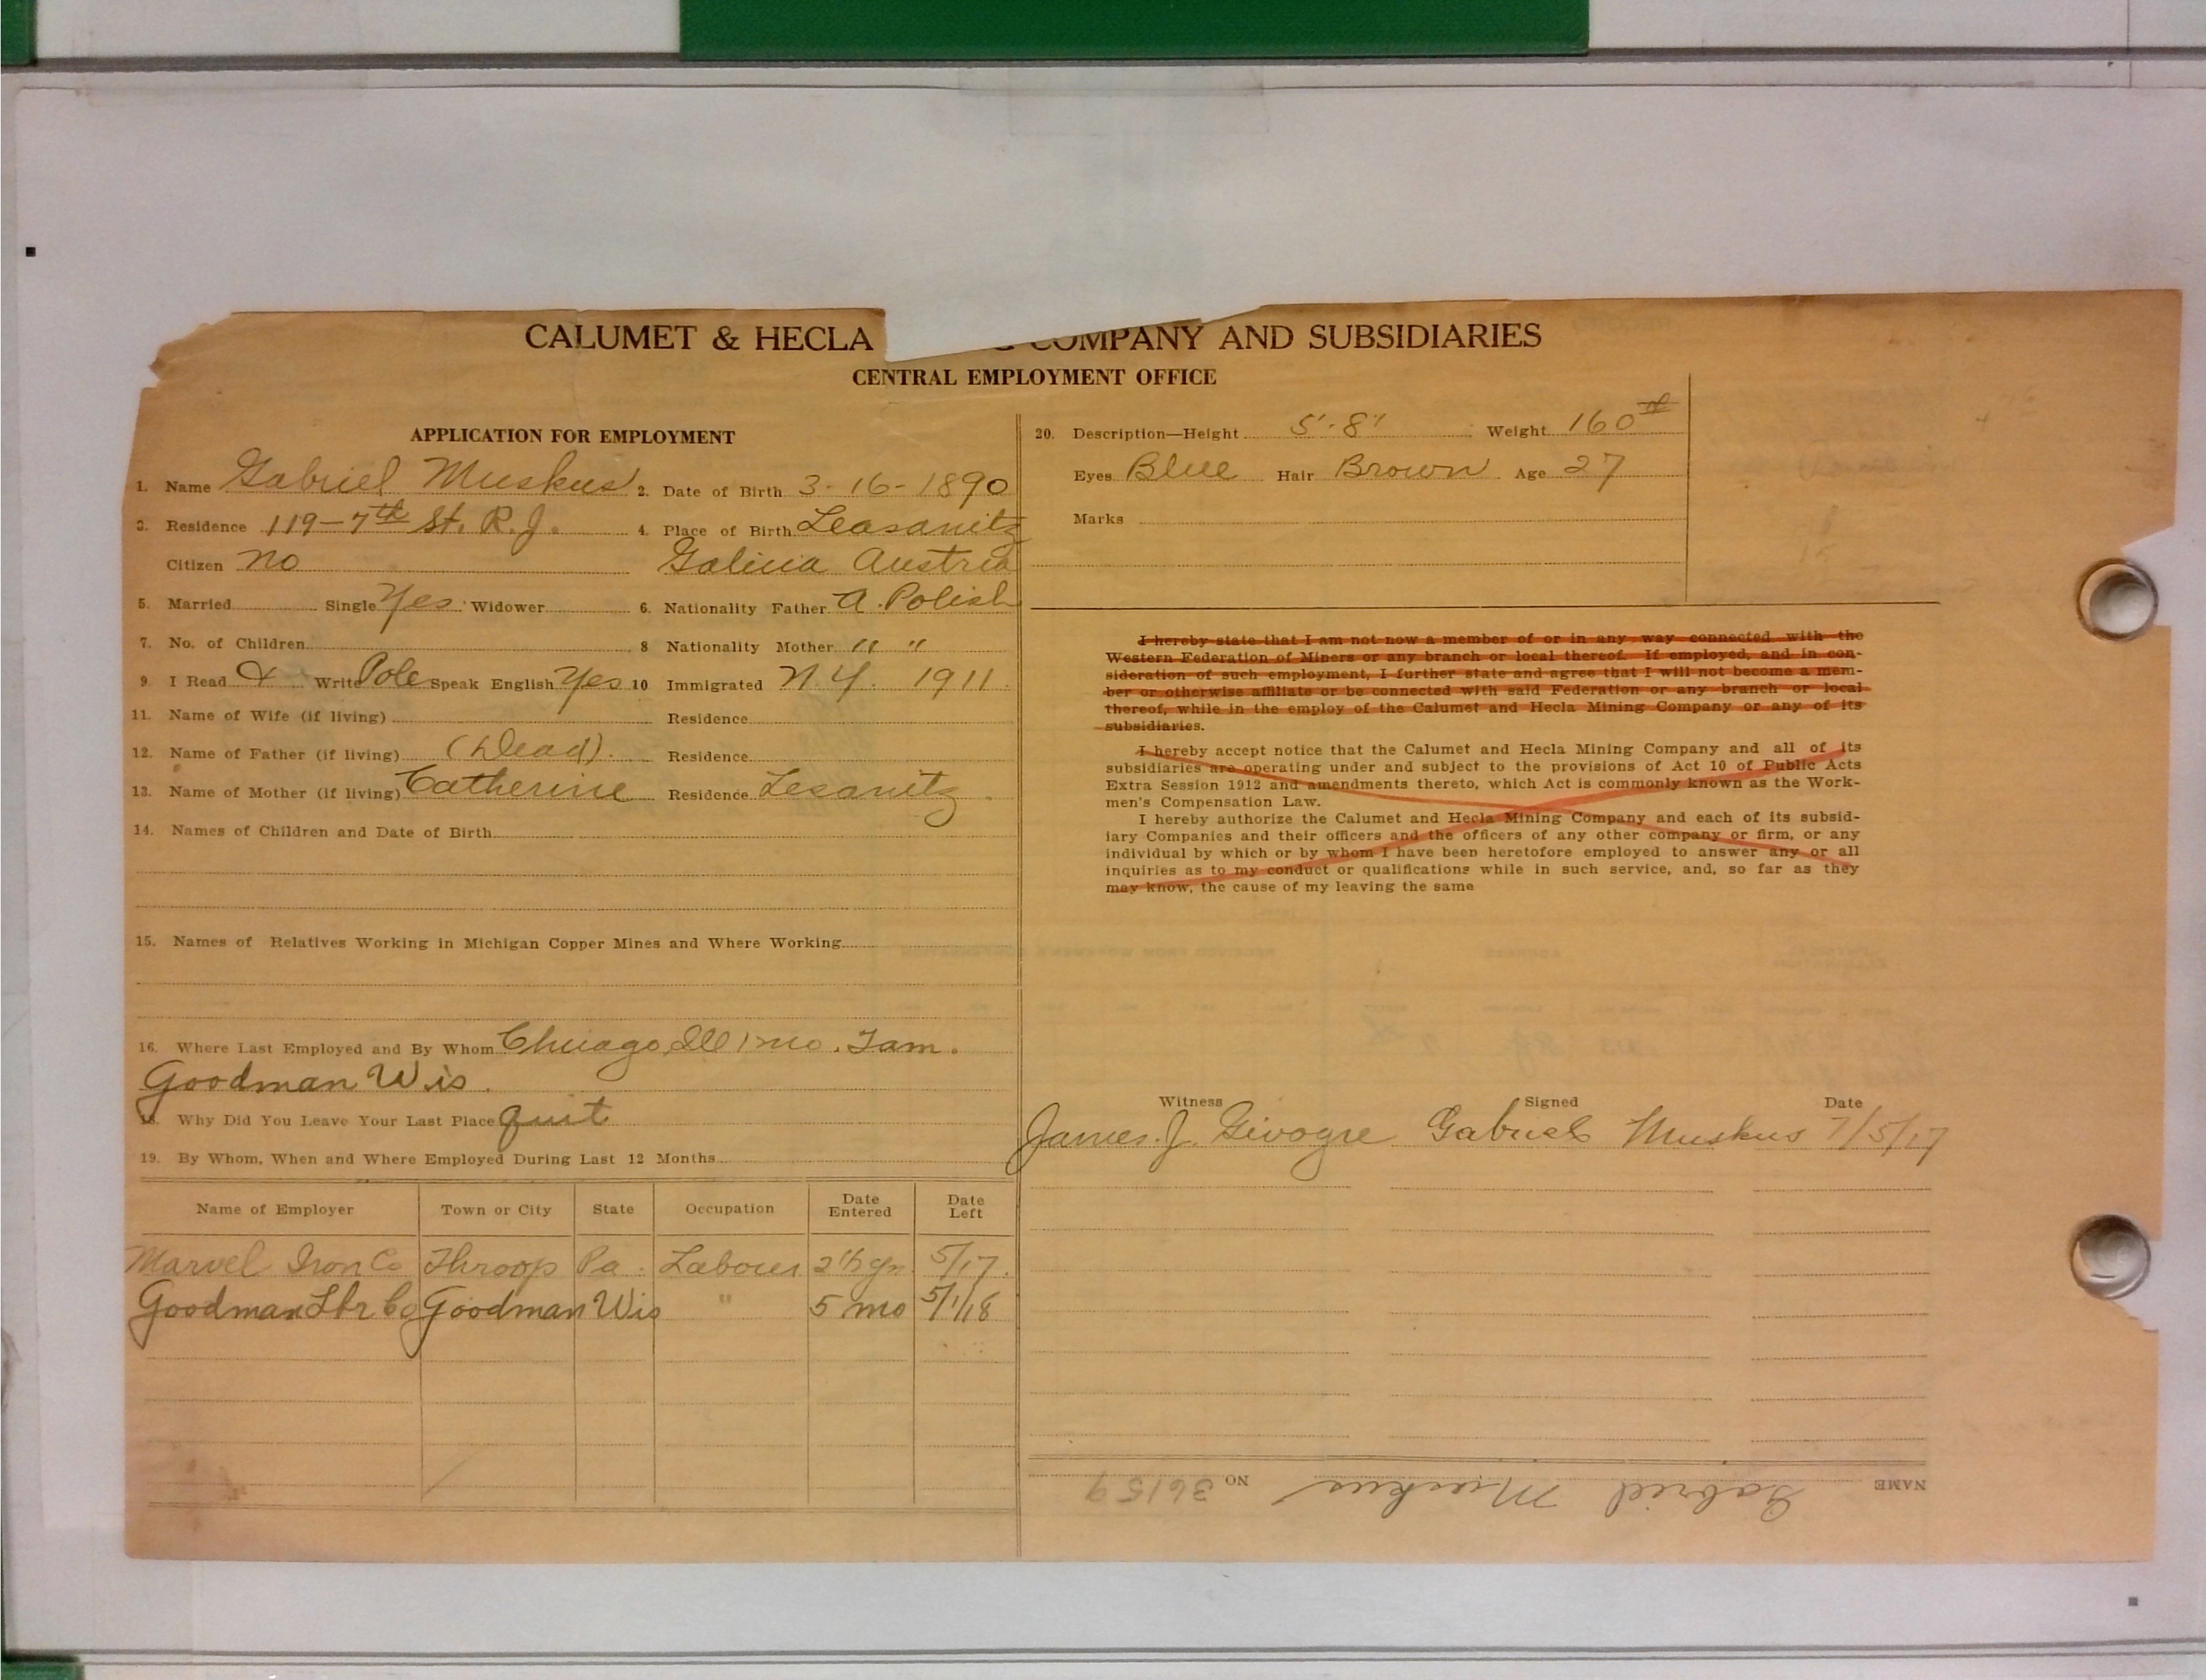 CALUMET & HECLA COMPANY AND SUBSIDIARIES
CENTRAL EMPLOYMENT OFFICE
APPLICATION FOR EMPLOYMENT
1. Name Gabriel Muskus 2. Date of Birth 3-16-1890
3. Residence 119-7th St. R.J. 4. Place of Birth Leasanitz
Citizen no Galicia Austria
5. Married Single Yes Widower 6. Nationality Father A. Polish
7. No. of Children 8 Nationality Mother " "
9. I Read & Write Pole Speak English Yes 10 Immigrated N.Y. 1911.
11. Name of Wife (if living) Residence
12. Name of Father (if living) (Dead). Residence
13. Name of Mother (if living) Catherine Residence Lesanitz
14. Names of Children and Date of Birth
15. Names of Relatives Working in Michigan Copper Mines and Where Working
16. Where Last Employed and By Whom Chicago, Ill 1 mo.
Goodman Wis.
Why Did You Leave Your Last Place quit
19. By Whom, When and Where Employed During Last 12 Months
Name of Employer Town or City State Occupation Date Entered Date Left
Marvel Iron Co Throop Pa. Laborer 5/17.
Goodman Lbr Co Goodman Wis " 5 mo 5/1/18
20. Description—Height 5'-8" Weight 160
Eyes Blue Hair Brown Age 27
Marks
I hereby state that I am not now a member of or in any way connected with the
Western Federation of Miners or any branch or local thereof. If employed, and in con-
sideration of such employment, I further state and agree that I will not become a mem-
ber or otherwise affiliate or be connected with said Federation or any branch or local
thereof, while in the employ of the Calumet and Hecla Mining Company or any of its
subsidiaries.
I hereby accept notice that the Calumet and Hecla Mining Company and all of its
subsidiaries are operating under and subject to the provisions of Act 10 of Public Acts
Extra Session 1912 and amendments thereto, which Act is commonly known as the Work-
men's Compensation Law.
I hereby authorize the Calumet and Hecla Mining Company and each of its subsid-
iary Companies and their officers and the officers of any other company or firm, or any
individual by which or by whom I have been heretofore employed to answer any or all
inquiries as to my conduct or qualifications while in such service, and, so far as they
may know, the cause of my leaving the same
Witness Signed Date
James. J. Gabriel Muskus 7/5/17
NAME Gabriel Muskus NO 36159